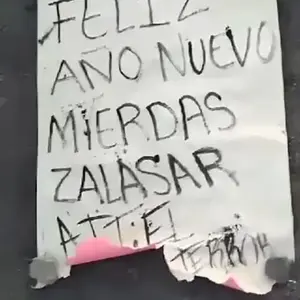 FELIZ
AÑO NUEVO
MIERDAS
ZALASAR
ATT: EL
TERROR